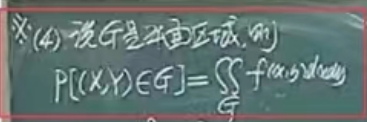 ※(4) 设G是平面区域,则
P[(X,Y)∈G]=∬f(x,y)dxdy
G